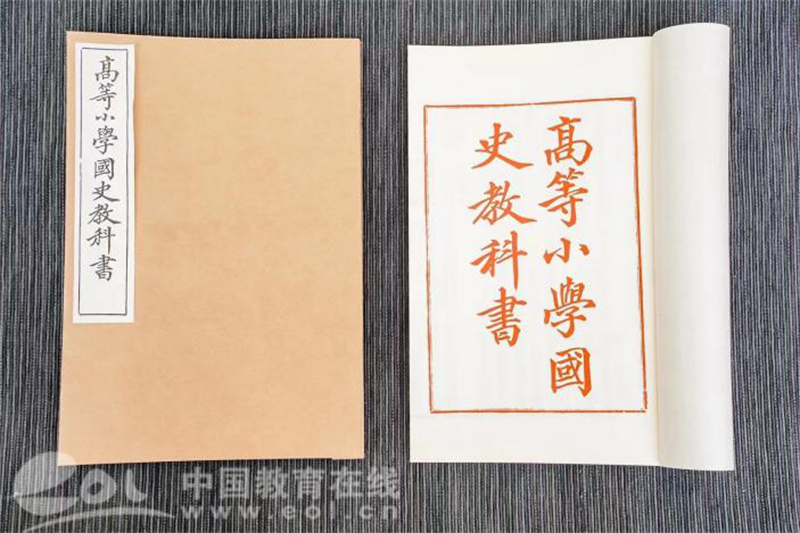 高等小學國史教科書
高等小學國
史教科書
eol 中国教育在线
www.eol.cn